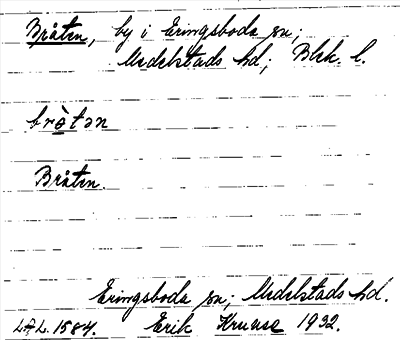 Bråten, by i Eringsboda sn;
Medelstads hd; Blek. l.
bròtən
Bråten.
Eringsboda sn; Medelstads hd.
L.A.L. 1584. Erik Kruuse 1932.